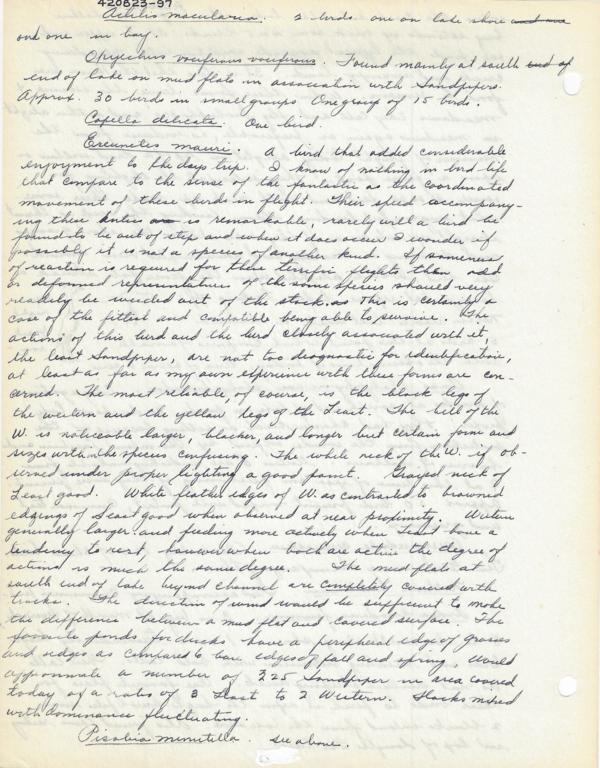 420823-97
Actitis macularia. 2 birds one on lake shore and one
and one in bay.
Oxyechus vociferous vociferous. Found mainly at south end of
end of lake on mud flats in association with Sandpipers.
Approx. 30 birds in small groups. One group of 15 birds.
Capella delicata. One bird.
Ereunetes mauri. A bird that added considerable
enjoyment to the days trip. I know of nothing in bird life
that compare to the sense of the fantastic as the coordinated
movement of these birds in flight. Their speed accompany-
ing these antics is remarkable, rarely will a bird be
found to be out of step and when it does occur I wonder if
possibly it is not a species of another kind. If someness
of reaction is required for these terrific flights then odd
or deformed representatives of the same species should very
readily be weeded out of the stock. as This is certainly a
case of the fittest and compatible being able to survive. The
actions of this bird and the bird closely associated with it,
the least Sandpiper, are not too diagnostic for identification,
at least as far as my own experience with these forms are con-
cerned. The most reliable, of course, is the black legs of
the western and the yellow legs of the Least. The bill of the
W. is noticeable larger, blacker, and longer but certain form and
sizes within the species confusing. The white neck of the W. if ob-
served under proper lighting a good point. Grayed neck of
Least good. White feather edges of W. as contrasted to browned
edgings of Least good when observed at near proximity. Western
generally larger and feeding more actively when Least have a
tendency to rest, however when both are active the degree of
actions is much the same degree. The mud flats at
south end of lake beyond channel are completely covered with
tracks. The direction of wind would be sufficient to make
the difference between a mud flat and covered surface. The
favorite ponds for ducks have a peripheral edge of grasses
and sedges as compared to bare edges of fall and spring. Would
approximate a number of 225 Sandpiper in area covered
today of a ratio of 3 Least to 2 Western. Flocks mixed
with dominance fluctuating.
Pisobia minutilla. see above.